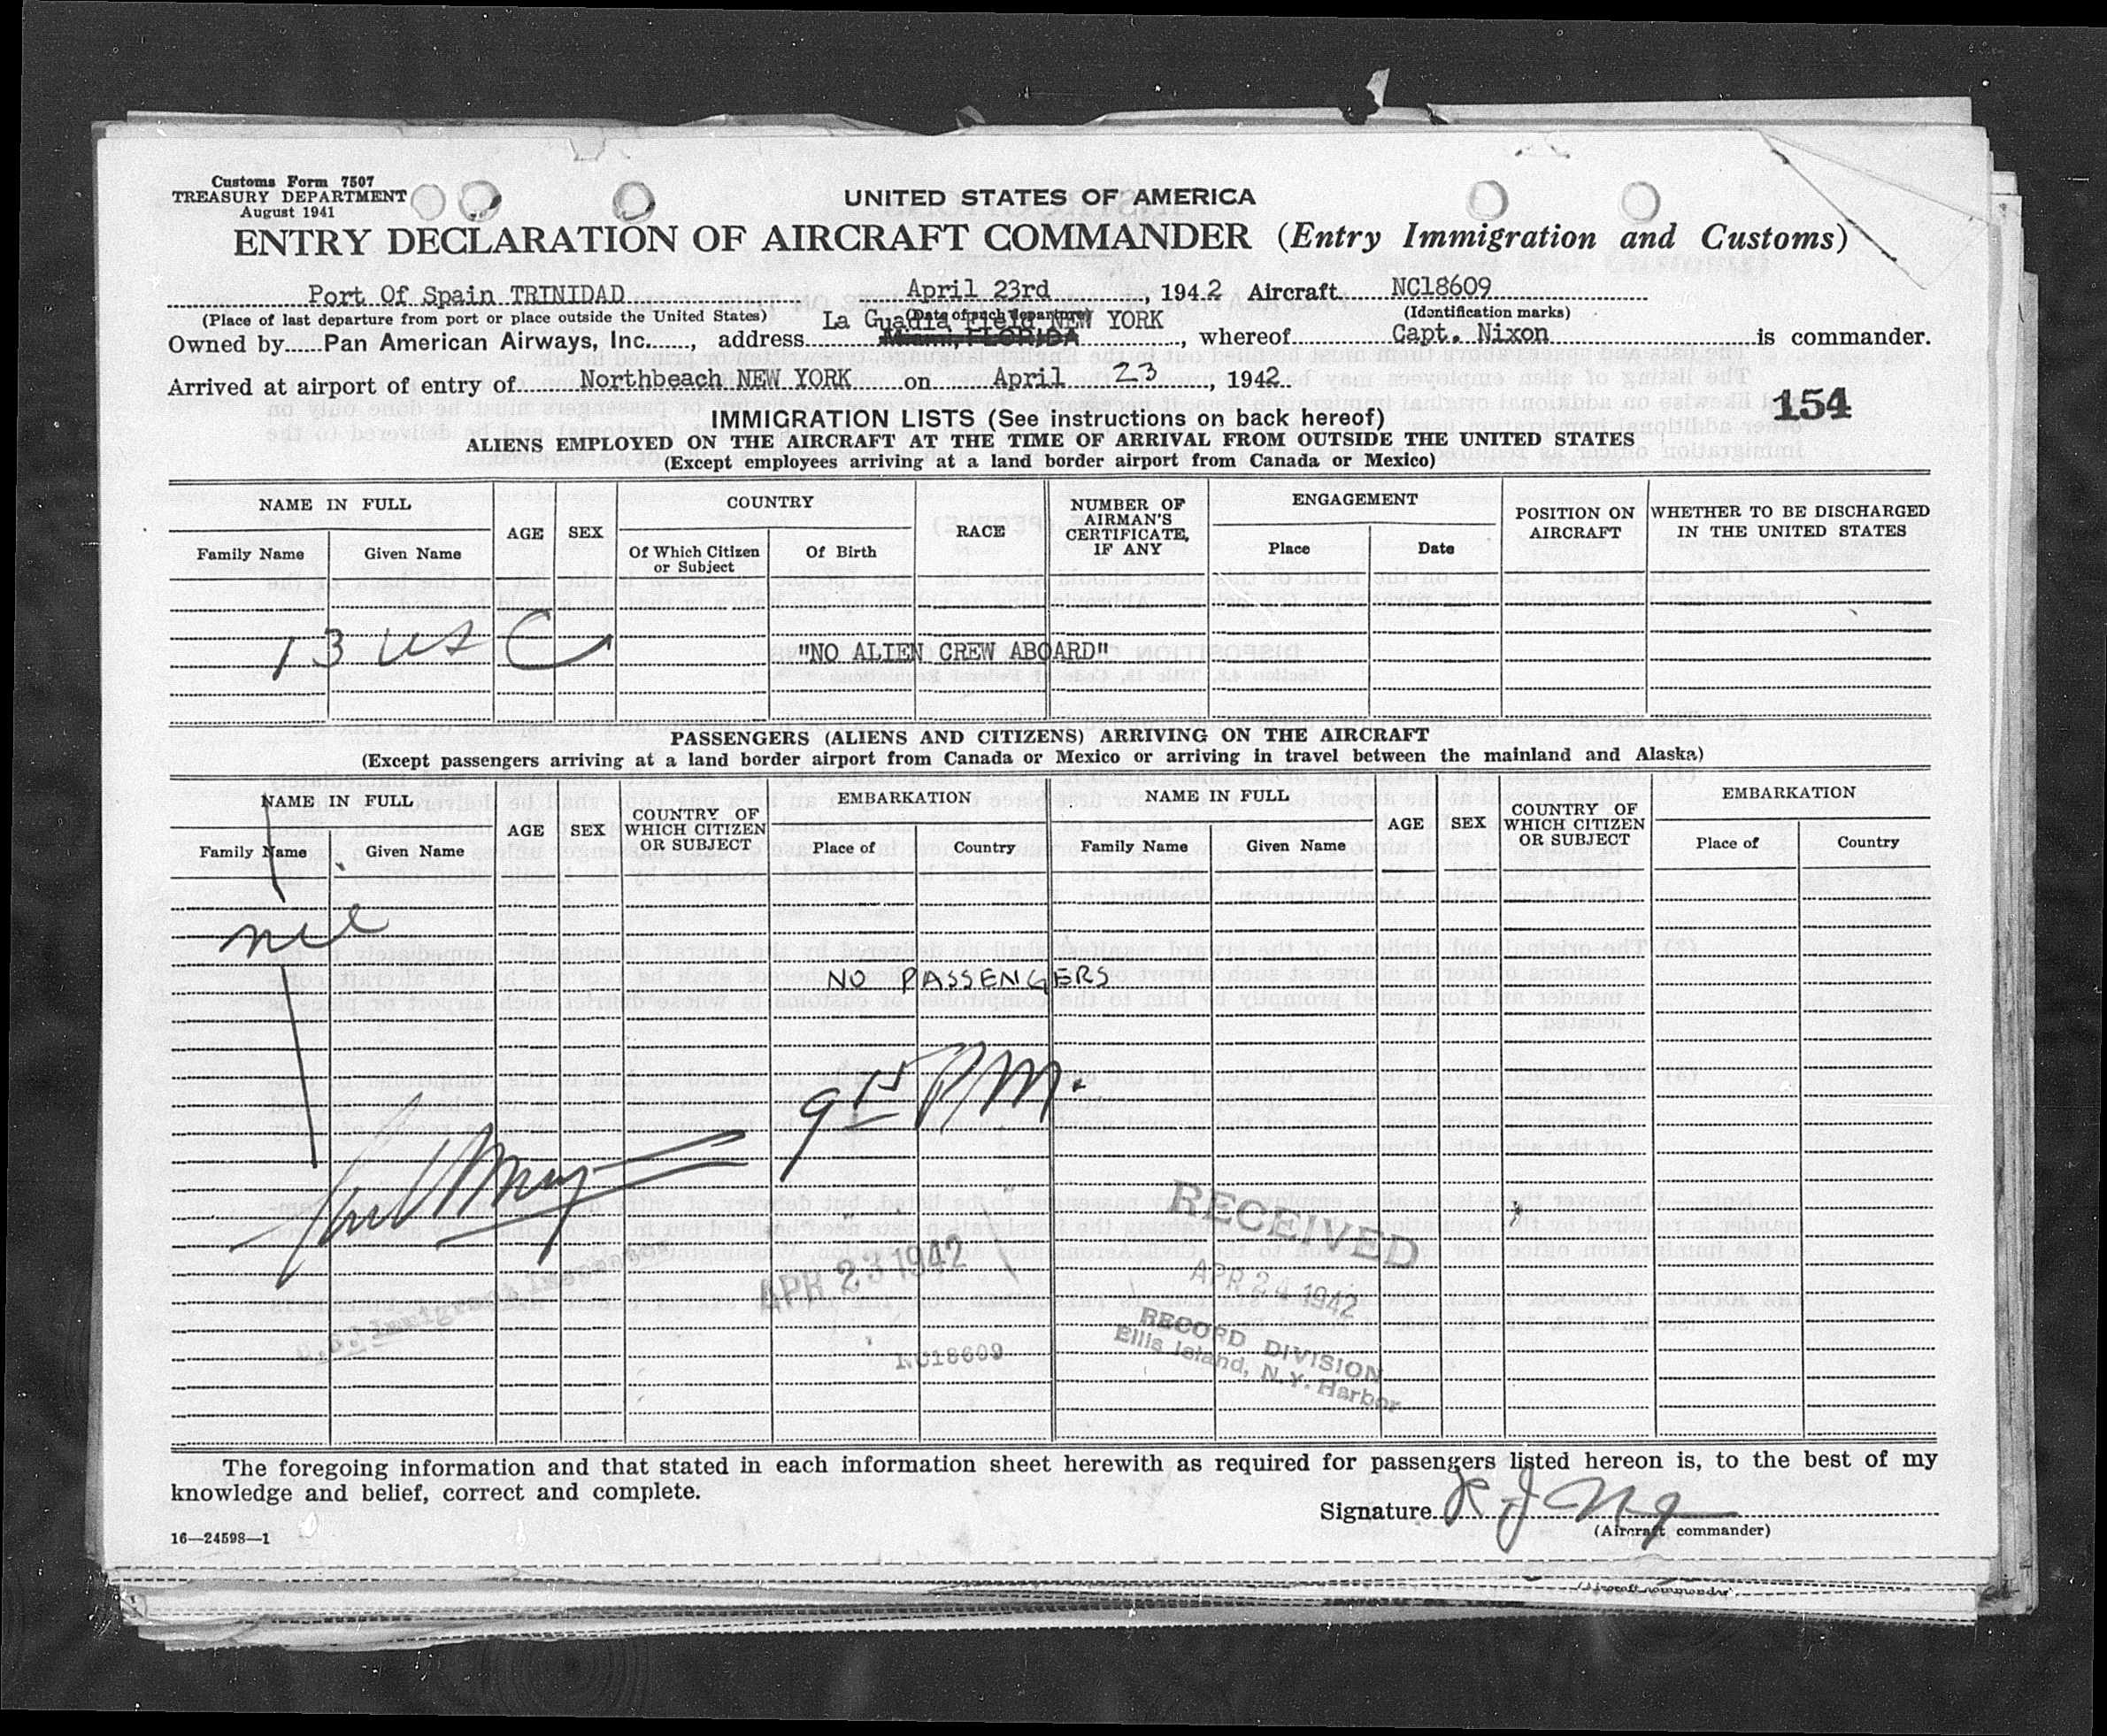 Customs Form 7507
TREASURY DEPARTMENT
August 1941
UNITED STATES OF AMERICA
ENTRY DECLARATION OF AIRCRAFT COMMANDER (Entry Immigration and Customs)
Port Of Spain TRINIDAD April 23rd, 1942 Aircraft NC18609
(Place of last departure from port or place outside the United States) (Date of such departure) (Identification marks)
La Guadia Field NEW YORK
Owned by Pan American Airways, Inc., address Miami FLORIDA, whereof Capt. Nixon is commander.
Arrived at airport of entry of Northbeach NEW YORK on April 23, 1942.
154
IMMIGRATION LISTS (See instructions on back hereof)
ALIENS EMPLOYED ON THE AIRCRAFT AT THE TIME OF ARRIVAL FROM OUTSIDE THE UNITED STATES
(Except employees arriving at a land border airport from Canada or Mexico)
NAME IN FULL AGE SEX COUNTRY RACE NUMBER OF AIRMAN'S CERTIFICATE, IF ANY ENGAGEMENT POSITION ON AIRCRAFT WHETHER TO BE DISCHARGED IN THE UNITED STATES
Family Name Given Name Of Which Citizen or Subject Of Birth Place Date
13 USC
"NO ALIEN CREW ABOARD"
PASSENGERS (ALIENS AND CITIZENS) ARRIVING ON THE AIRCRAFT
(Except passengers arriving at a land border airport from Canada or Mexico or arriving in travel between the mainland and Alaska)
NAME IN FULL AGE SEX COUNTRY OF WHICH CITIZEN OR SUBJECT EMBARKATION NAME IN FULL AGE SEX COUNTRY OF WHICH CITIZEN OR SUBJECT EMBARKATION
Family Name Given Name Place of Country Family Name Given Name Place of Country
nil
NO PASSENGERS
9 15 P.M.
RECEIVED
APR 23 1942
APR 24 1942
U.S. Immigrant Inspector
RECORD DIVISION
Ellis Island, N.Y. Harbor
NC18609
The foregoing information and that stated in each information sheet herewith as required for passengers listed hereon is, to the best of my
knowledge and belief, correct and complete.
Signature
(Aircraft commander)
16—24598—1
(Aircraft commander)